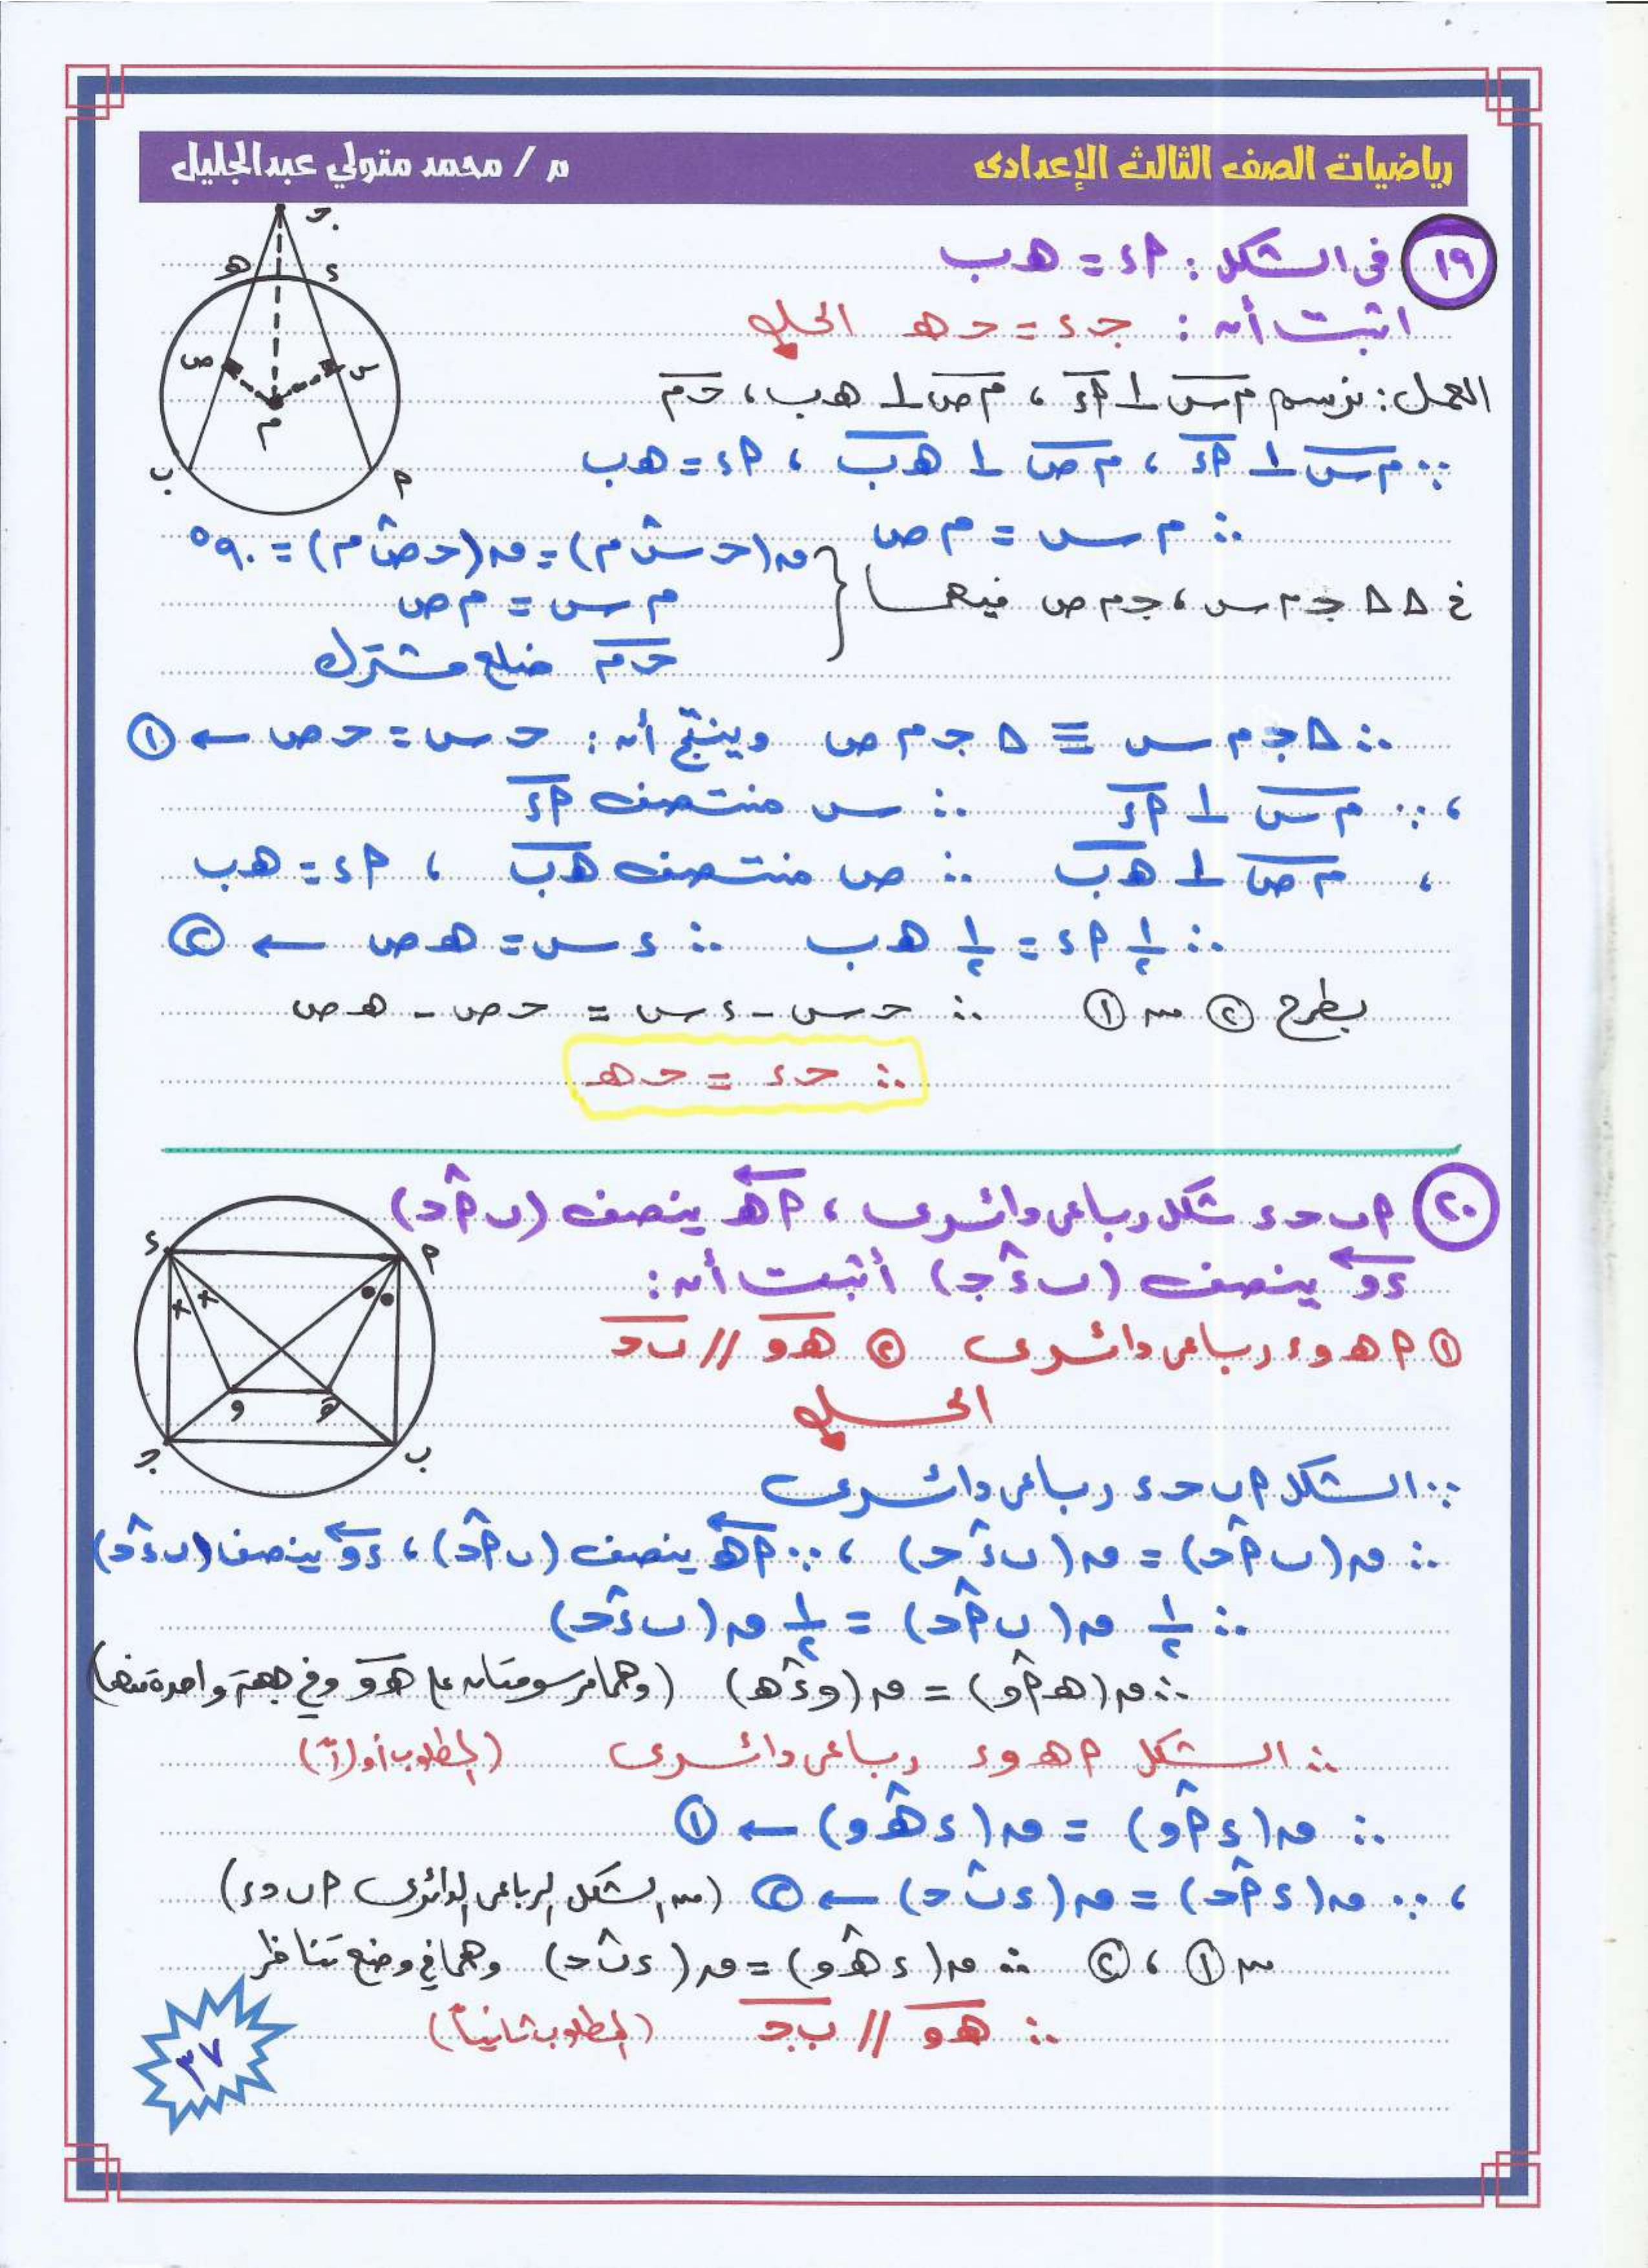 رياضيات الصف الثالث الإعدادى
م / محمد متولي عبدالجليل
١٩ فى الشكل : أء = هـ ب
اثبت أن : جـ ء = حـ هـ الحل
العمل : نرسم م س ⊥ أء ، م ص ⊥ هـ ب ، حـ م
∵ م س ⊥ أء ، م ص ⊥ هـ ب ، أء = هـ ب
∴ م س = م ص
في ΔΔ جـ م س ، جـ م ص فيهما { ق(حـ س م) = ق(حـ ص م) = ٩٠°
م س = م ص
حـ م ضلع مشترك
∴ Δ جـ م س ≡ Δ جـ م ص وينتج أن : حـ س = حـ ص ← ①
، ∵ م س ⊥ أء ∴ س منتصف أء
، م ص ⊥ هـ ب ∴ ص منتصف هـ ب ، أء = هـ ب
∴ ١/٢ أء = ١/٢ هـ ب ∴ ء س = هـ ص ← ②
بطرح ② من ① ∴ حـ س - ء س = حـ ص - هـ ص
∴ حـ ء = حـ هـ
جـ
هـ ء
ص س
م
ب أ
٢٠ أ ب حـ ء شكل رباعى دائرى ، أهـ ينصف (ب أ حـ)
ء و ينصف (ب ء جـ) أثبت أن :
① أ هـ و ء رباعى دائرى ② هـ و // ب حـ
الحل
ء أ
و هـ
جـ ب
∵ الشكل أ ب حـ ء رباعى دائرى
∴ ق(ب أ حـ) = ق(ب ء حـ) ، ∵ أهـ ينصف (ب أ حـ) ، ء و ينصف (ب ء حـ)
∴ ١/٢ ق(ب أ حـ) = ١/٢ ق(ب ء حـ)
∴ ق(هـ أ و) = ق(و ء هـ) (وهما مرسومتان على هـ و وفى جهة واحدة منها)
∴ الشكل أ هـ و ء رباعى دائرى (المطلوب أولاً)
∴ ق(ء أ و) = ق(ء هـ و) ← ①
، ∵ ق(ء أ حـ) = ق(ء ب حـ) ← ② (من الشكل الرباعى الدائرى أ ب حـ ء)
من ① ، ② ∴ ق(ء هـ و) = ق(ء ب حـ) وهما فى وضع تناظر
∴ هـ و // ب جـ (المطلوب ثانياً)
٣٧